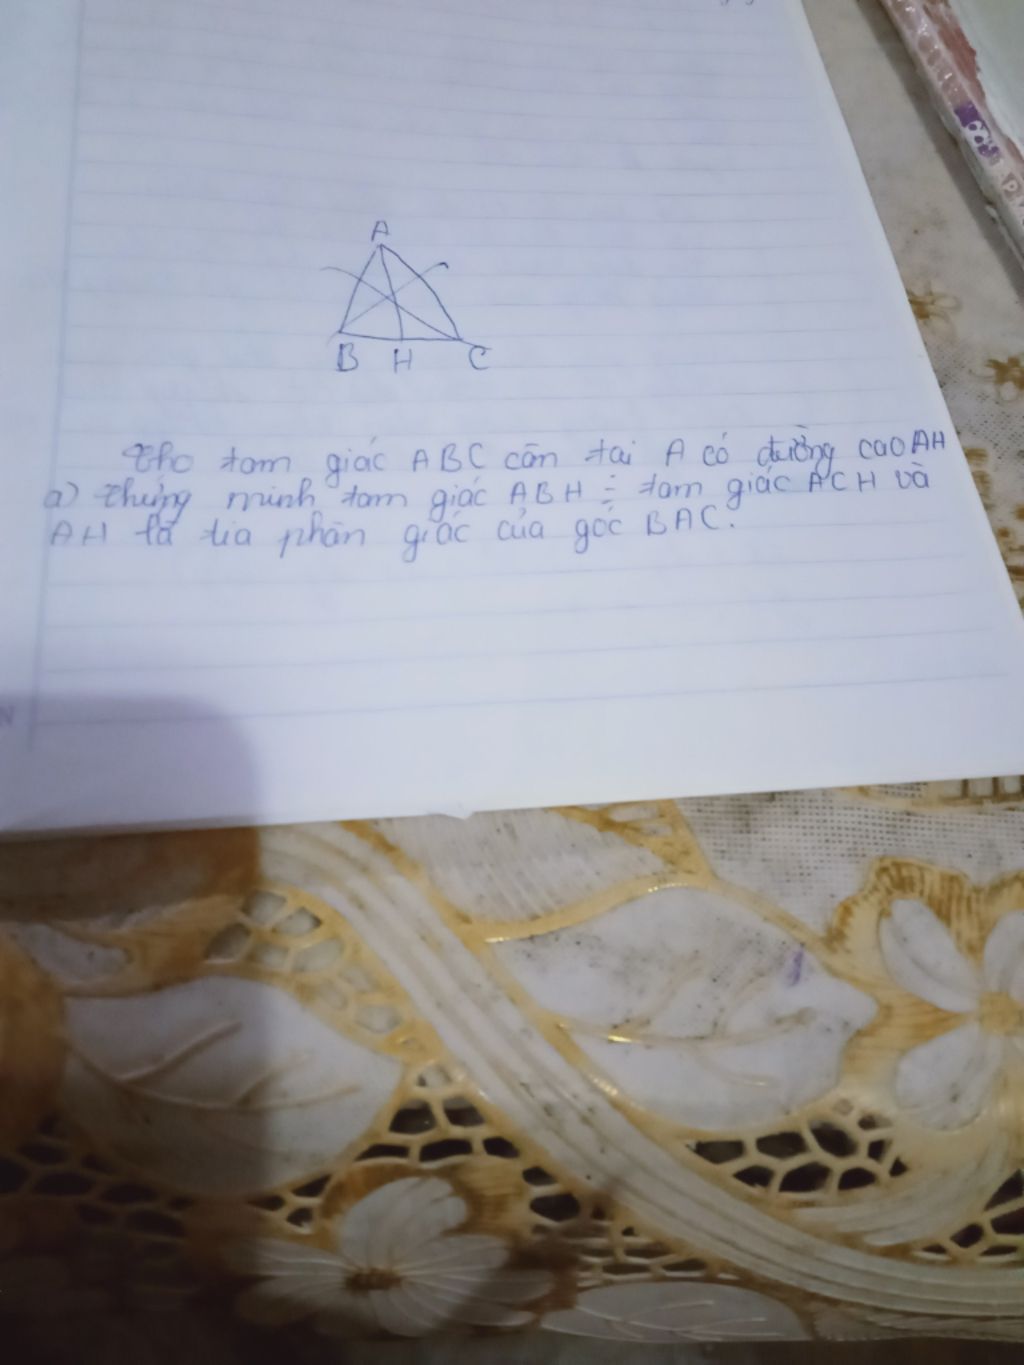 A
B H C
Cho tam giác ABC cân tai A có đường cao AH
a) Chứng minh tam giác ABH = tam giác ACH và
AH là tia phân giác của góc BAC.